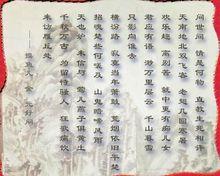 问世间 情是何物 直教生死相许
天南地北双飞客 老翅几回寒暑
欢乐趣 离别苦 就中更有痴儿女
君应有语 渺万里层云 千山暮雪
只影向谁去
横汾路 寂寞当年箫鼓 荒烟依旧平楚
招魂楚些何嗟及 山鬼暗啼风雨
天也妒 未信与 莺儿燕子俱黄土
千秋万古 为留待骚人 狂歌痛饮
来访雁丘处
金 元好问